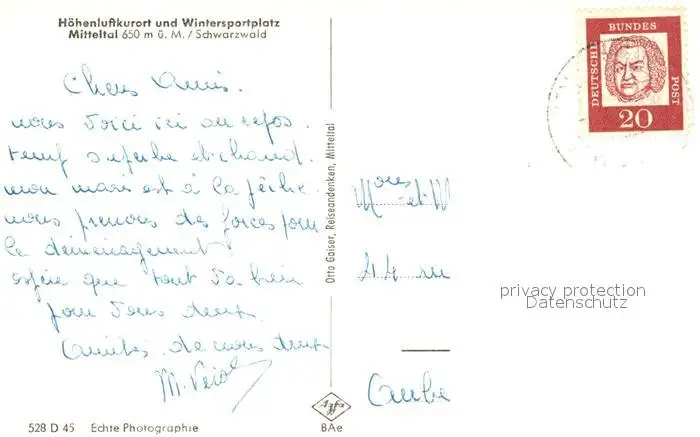 Höhenluftkurort und Wintersportplatz
Mitteltal 650 m ü. M. / Schwarzwald
Chers Amis.
nous voici ici au repos.
temps superbe et chaud.
mon mari est à la pêche.
nous prenons des forces pour
le déménagement
espère que tout va bien
pour vous deux.
Amitiés de nous deux
M.
528 D 45 Echte Photographie
Otto Gaiser, Reiseandenken, Mitteltal
Agfa
BAe
DEUTSCHE
BUNDES
POST
20
et M
44 ru
privacy protection
Datenschutz